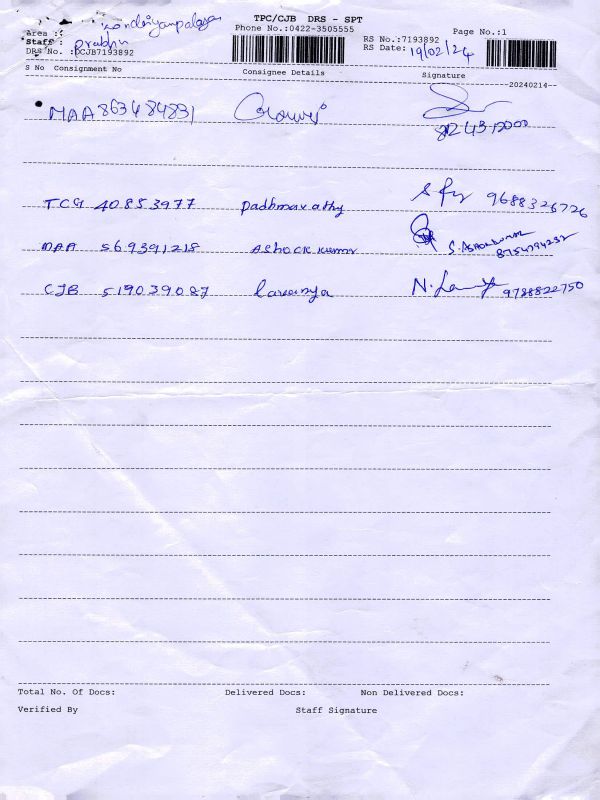 TPC/CJB DRS - SPT
Area :
Staff : Prabhu
Phone No.:0422-3505555
RS No.:7193892
Page No.:1
DRS No. :DCJB7193892
RS Date: 19/02/24
S No Consignment No Consignee Details Signature
--20240214--
MAA 863484831
TCG 40853977 padbmavathy 9688326726
MAA 569391218 Ashock kumar S. Ashokkumar
8754794232
CJB 519039087 Lavanya N. 9788822750
Total No. Of Docs: Delivered Docs: Non Delivered Docs:
Verified By Staff Signature